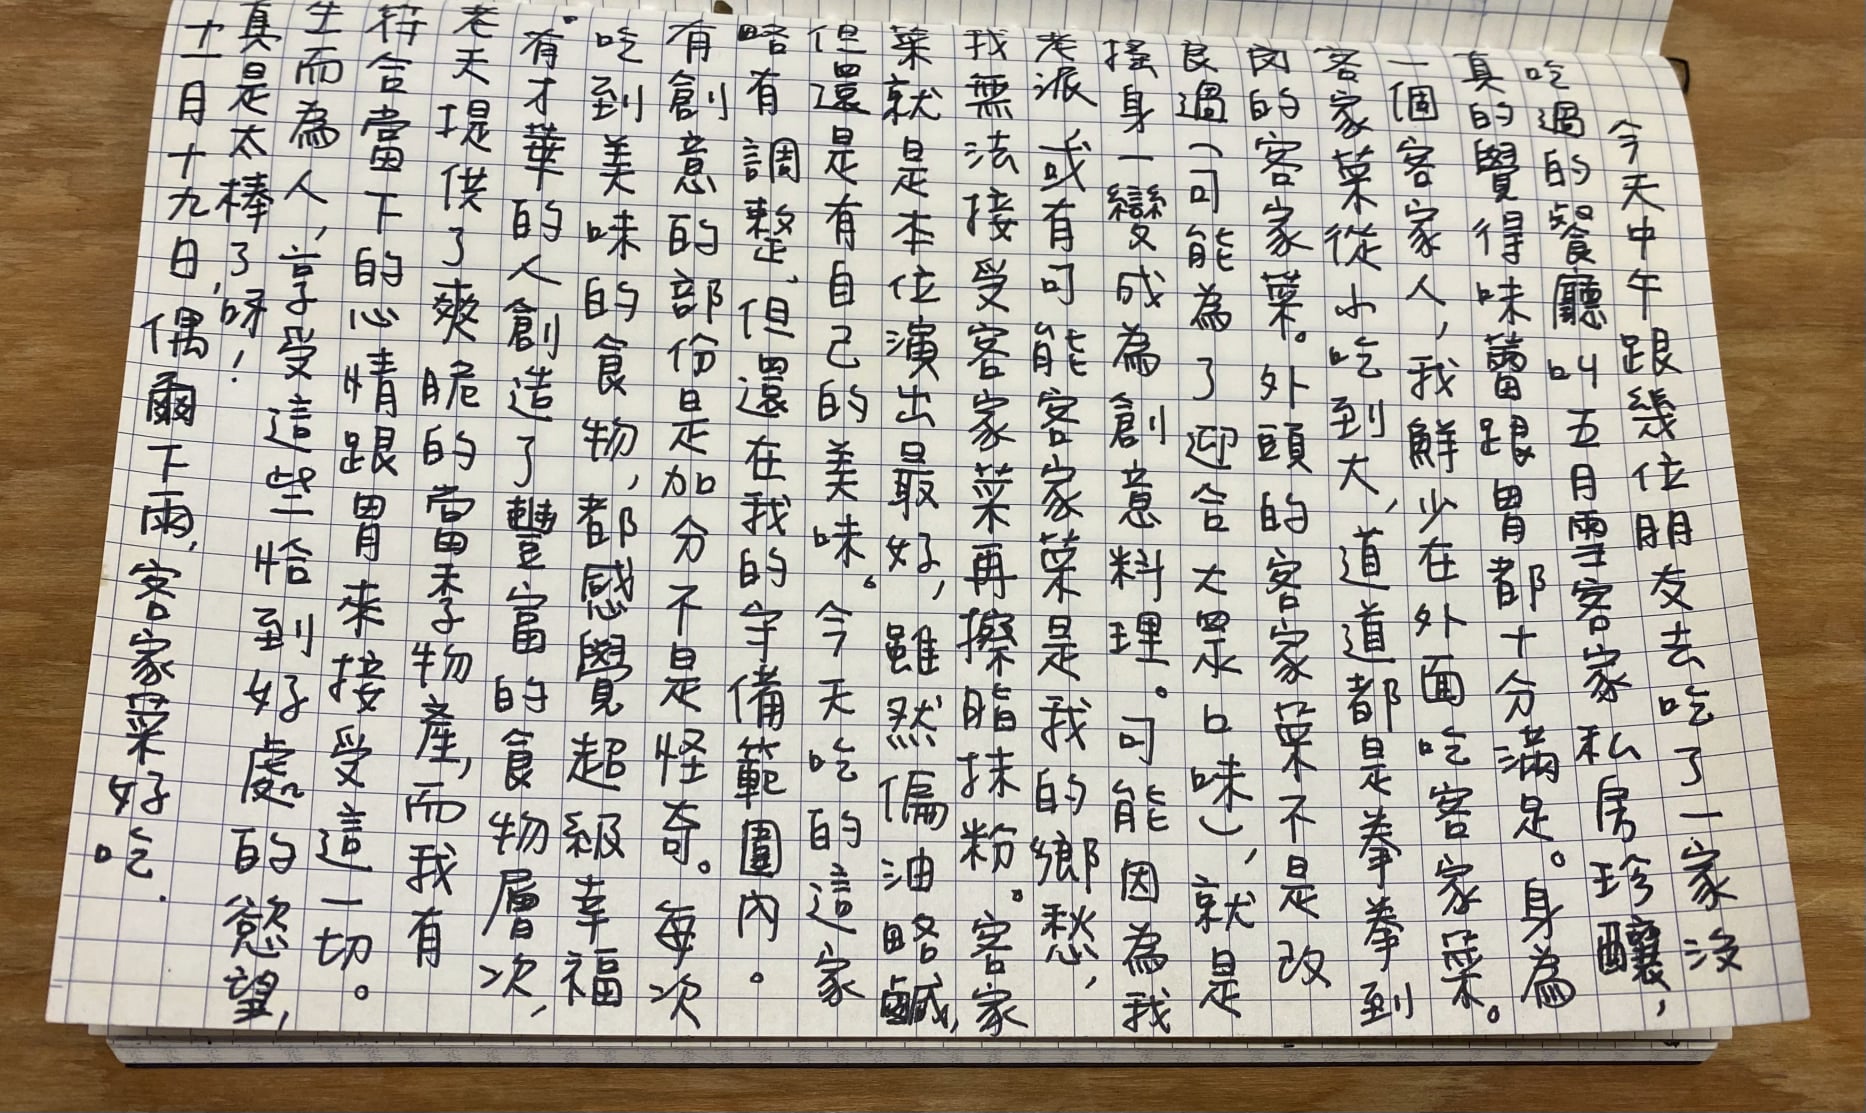 今天中午跟幾位朋友去吃了一家沒
吃過的餐廳叫五月雪客家私房珍釀,
真的覺得味蕾跟胃都十分滿足。身為
一個客家人,我鮮少在外面吃客家菜。
客家菜從小吃到大,道道都是拳拳到
肉的客家菜。外頭的客家菜不是不是改
良過(可能為了迎合大眾口味),就是
搖身一變成為創意料理。可能因為我
老派或有可能客家菜是我的鄉愁,
我無法接受客家菜再擦脂抹粉。客家
菜就是本位演出最好,雖然偏油略鹹,
但還是有自己的美味。今天吃的這家
略有調整,但還在我的守備範圍內。
有創意的部份是加分不是怪奇。每次
吃到美味的食物,都感覺超級幸福
。有才華的人創造了豐富的食物層次,
老天堤供了爽脆的當季物產,而我有
符合當下的心情跟胃來接受這一切。
生而為人,享受這些恰到好處的慾望,
真是太棒了呀!
十一月十九日,偶爾下雨,客家菜好吃.